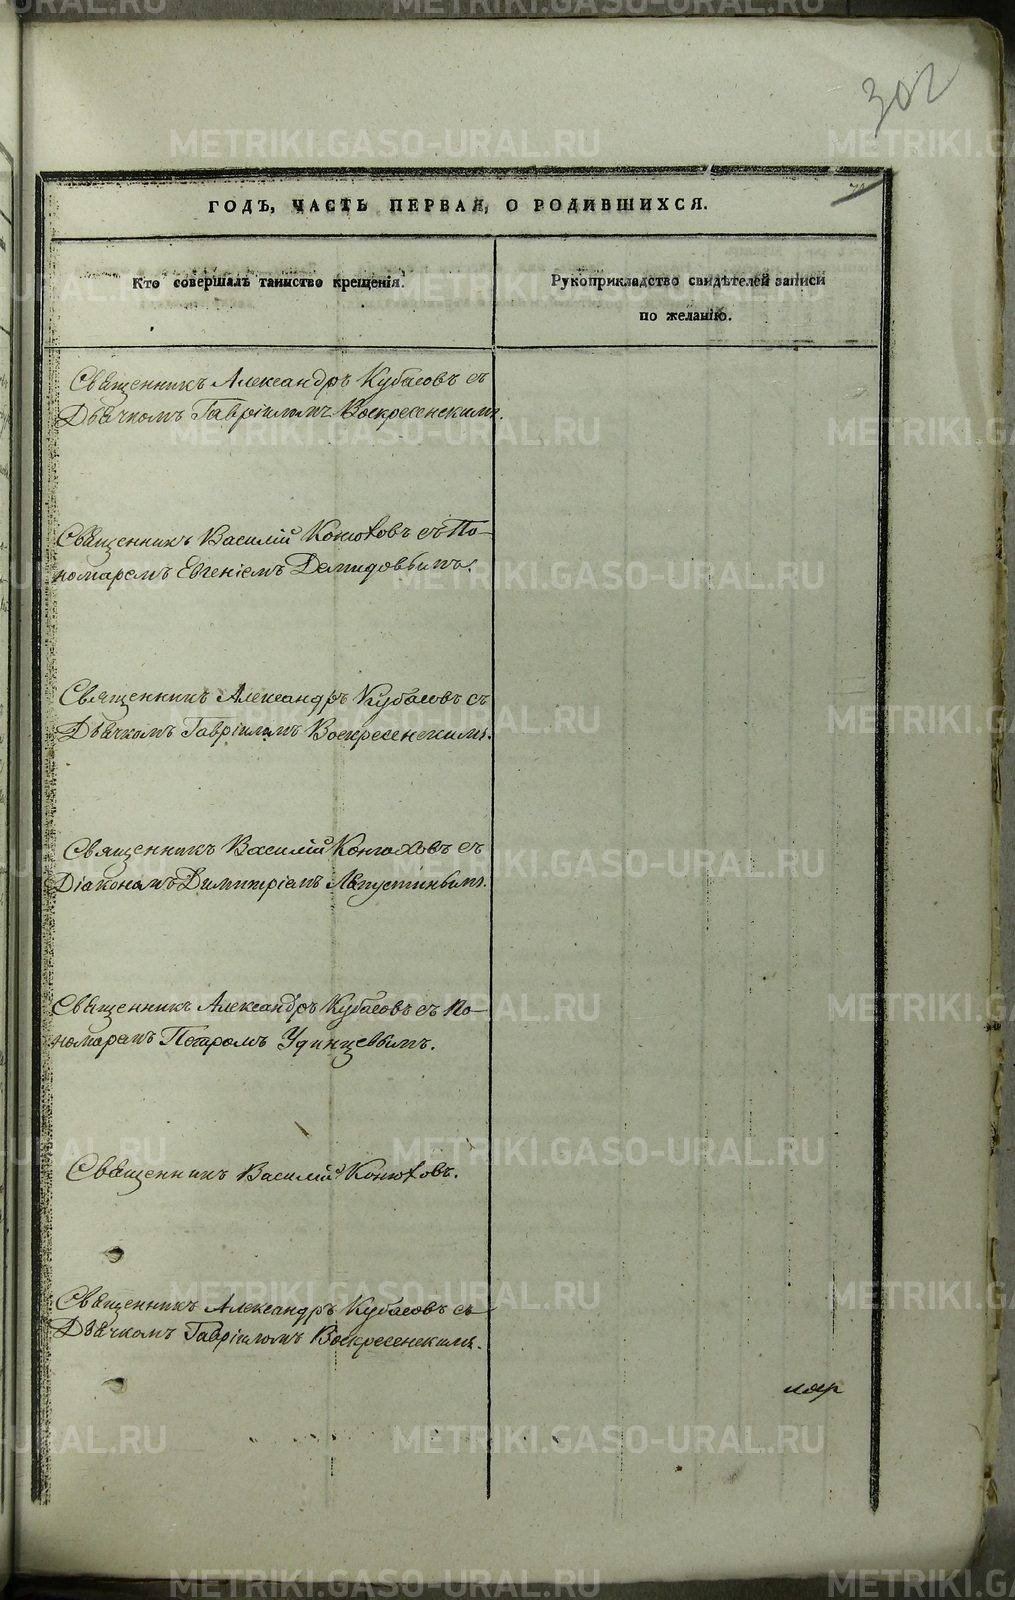 302
ГОДЪ, ЧАСТЬ ПЕРВАЯ, О РОДИВШИХСЯ.
Кто совершалъ таинство крещенія.
Рукоприкладство свидѣтелей записи
по желанію.
Священникъ Александръ Кубасовъ съ
Дьячкомъ Гавріиломъ Воскресенскимъ.
Священникъ Василій Конюховъ съ По-
номаремъ Евгеніемъ Демидовымъ.
Священникъ Александръ Кубасовъ съ
Дьячкомъ Гавріиломъ Воскресенскимъ.
Священникъ Василій Конюховъ съ
Діакономъ Димитріемъ Августиновымъ.
Священникъ Александръ Кубасовъ съ По-
номаремъ Петромъ Удинцевымъ.
Священникъ Василій Конюховъ.
Священникъ Александръ Кубасовъ съ
Дьячкомъ Гавріиломъ Воскресенскимъ.
METRIKI.GASO-URAL.RU